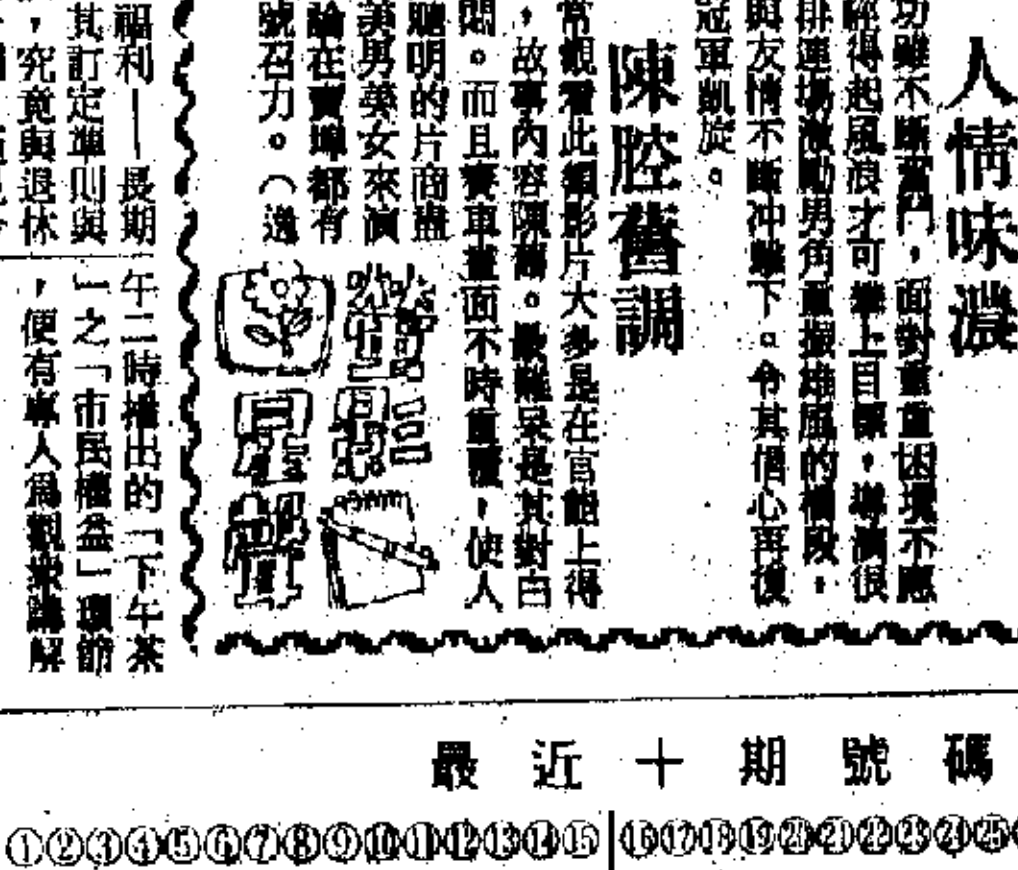 人情味濃
功雖不斷，面對重重困境不應
經得起風浪才可攀上目標，導演很
排連場激勵男角重振雄風的橋段，
與友情不斷冲擊下。令其信心再復
冠軍凱旋。
陳腔舊調
常觀看此類影片大多是在官能上得
，故事內容陳舊。最難是其對白
悶。而且賽車畫面不時重覆，使人
聰明的片商盡
美男美女來演
論在賣埠都有
號召力。（逸
福利——長期
其訂定準則與
，究竟與退休
午二時播出的「下午茶
」之「市民權益」環節
，便有專人為觀眾講解
最近十期號碼
①②③④⑤⑥⑦⑧⑨⑩⑪⑫⑬⑭⑮ ⑯⑰⑱⑲⑳㉑㉒㉓㉔㉕